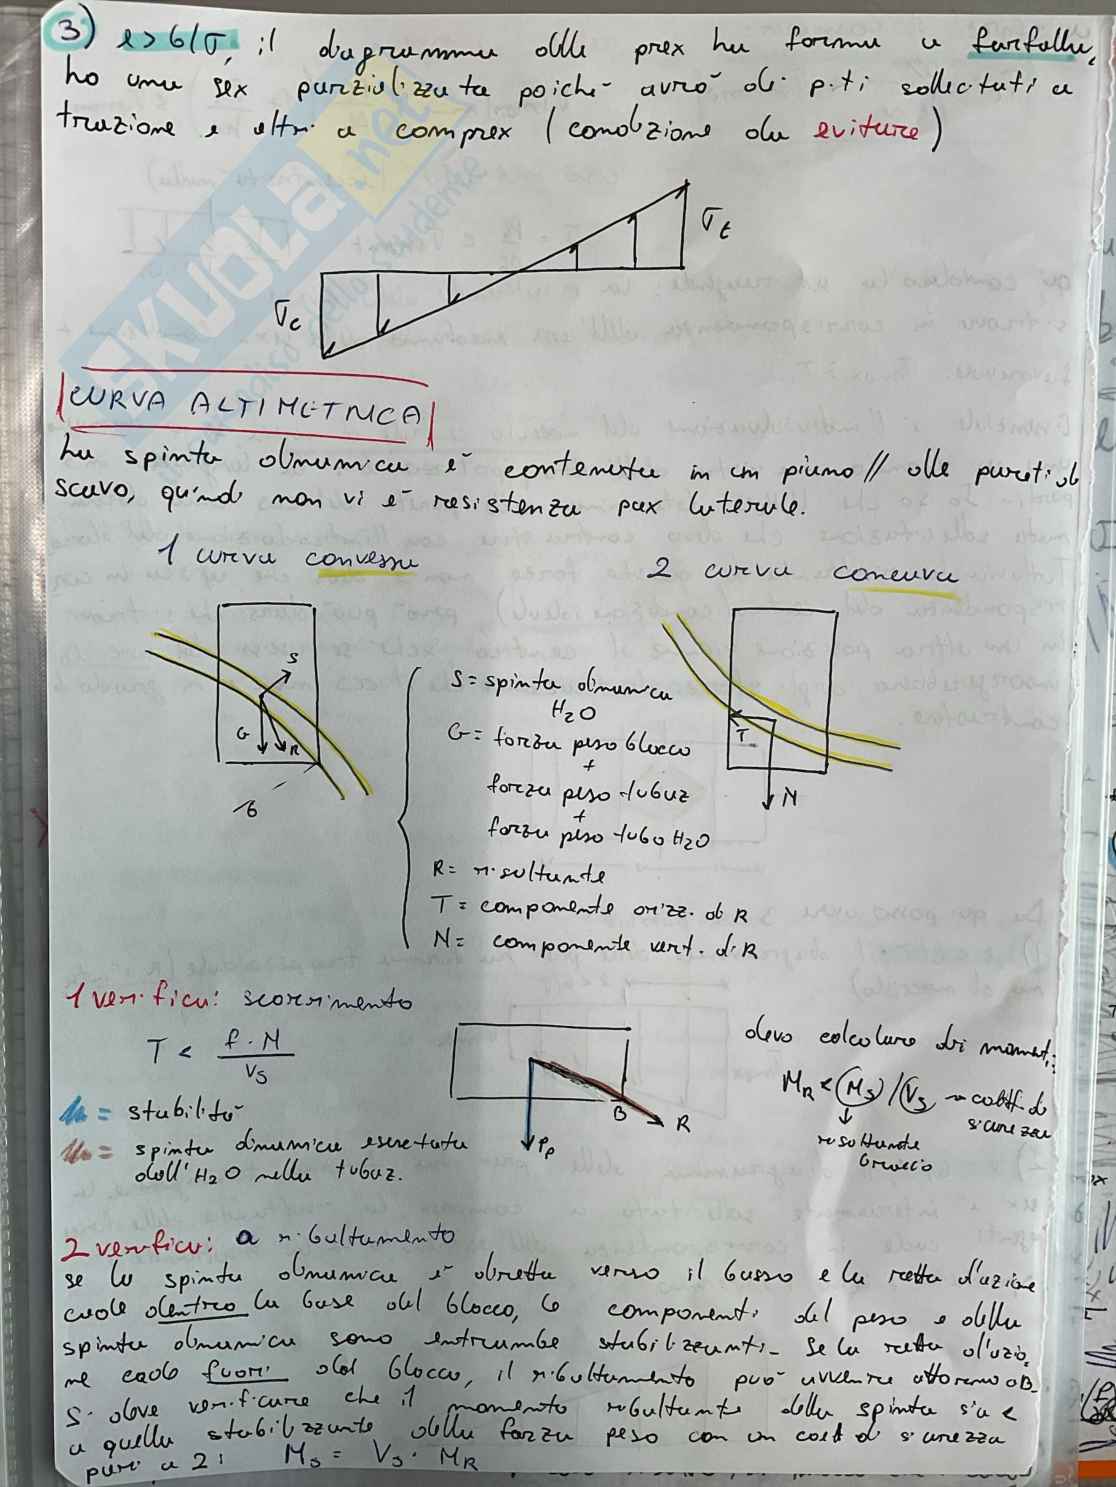 3) e > b/σ, il diagramma delle prex ha forma a farfalla,
ho una sex parzializzata poiché avrò di p.ti sollecitati a
trazione e altri a comprex (condizione da evitare)
σt
σc
CURVA ALTIMETRICA
La spinta dinamica è contenuta in un piano // alle pareti di
scavo, quindi non vi è resistenza pax laterale.
1 curva convessa
2 curva concava
S
G
R
B
S = spinta dinamica
H2O
G = forza peso blocco
+
forza peso tubaz
+
forza peso tubo H2O
R = risultante
T = componente orizz. di R
N = componente vert. di R
T
N
1 verifica: scorrimento
T < f · N / VS
= stabilità
= spinta dinamica esercitata
dall'H2O nella tubaz.
B
R
Pp
devo calcolare dei momenti:
MR < MS / VS → coeff. di
sicurezza
risultante
braccio
2 verifica: a ribaltamento
se la spinta dinamica è diretta verso il basso e la retta d'azione
cade dentro la base del blocco, le componenti del peso e della
spinta dinamica sono entrambe stabilizzanti. Se la retta d'azio
ne cade fuori dal blocco, il ribaltamento può avvenire attorno a B.
Si deve verificare che il momento ribaltante della spinta sia <
a quella stabilizzante della forza peso con un coef di sicurezza
pari a 2: MS = VS · MR
SKUOLA.net